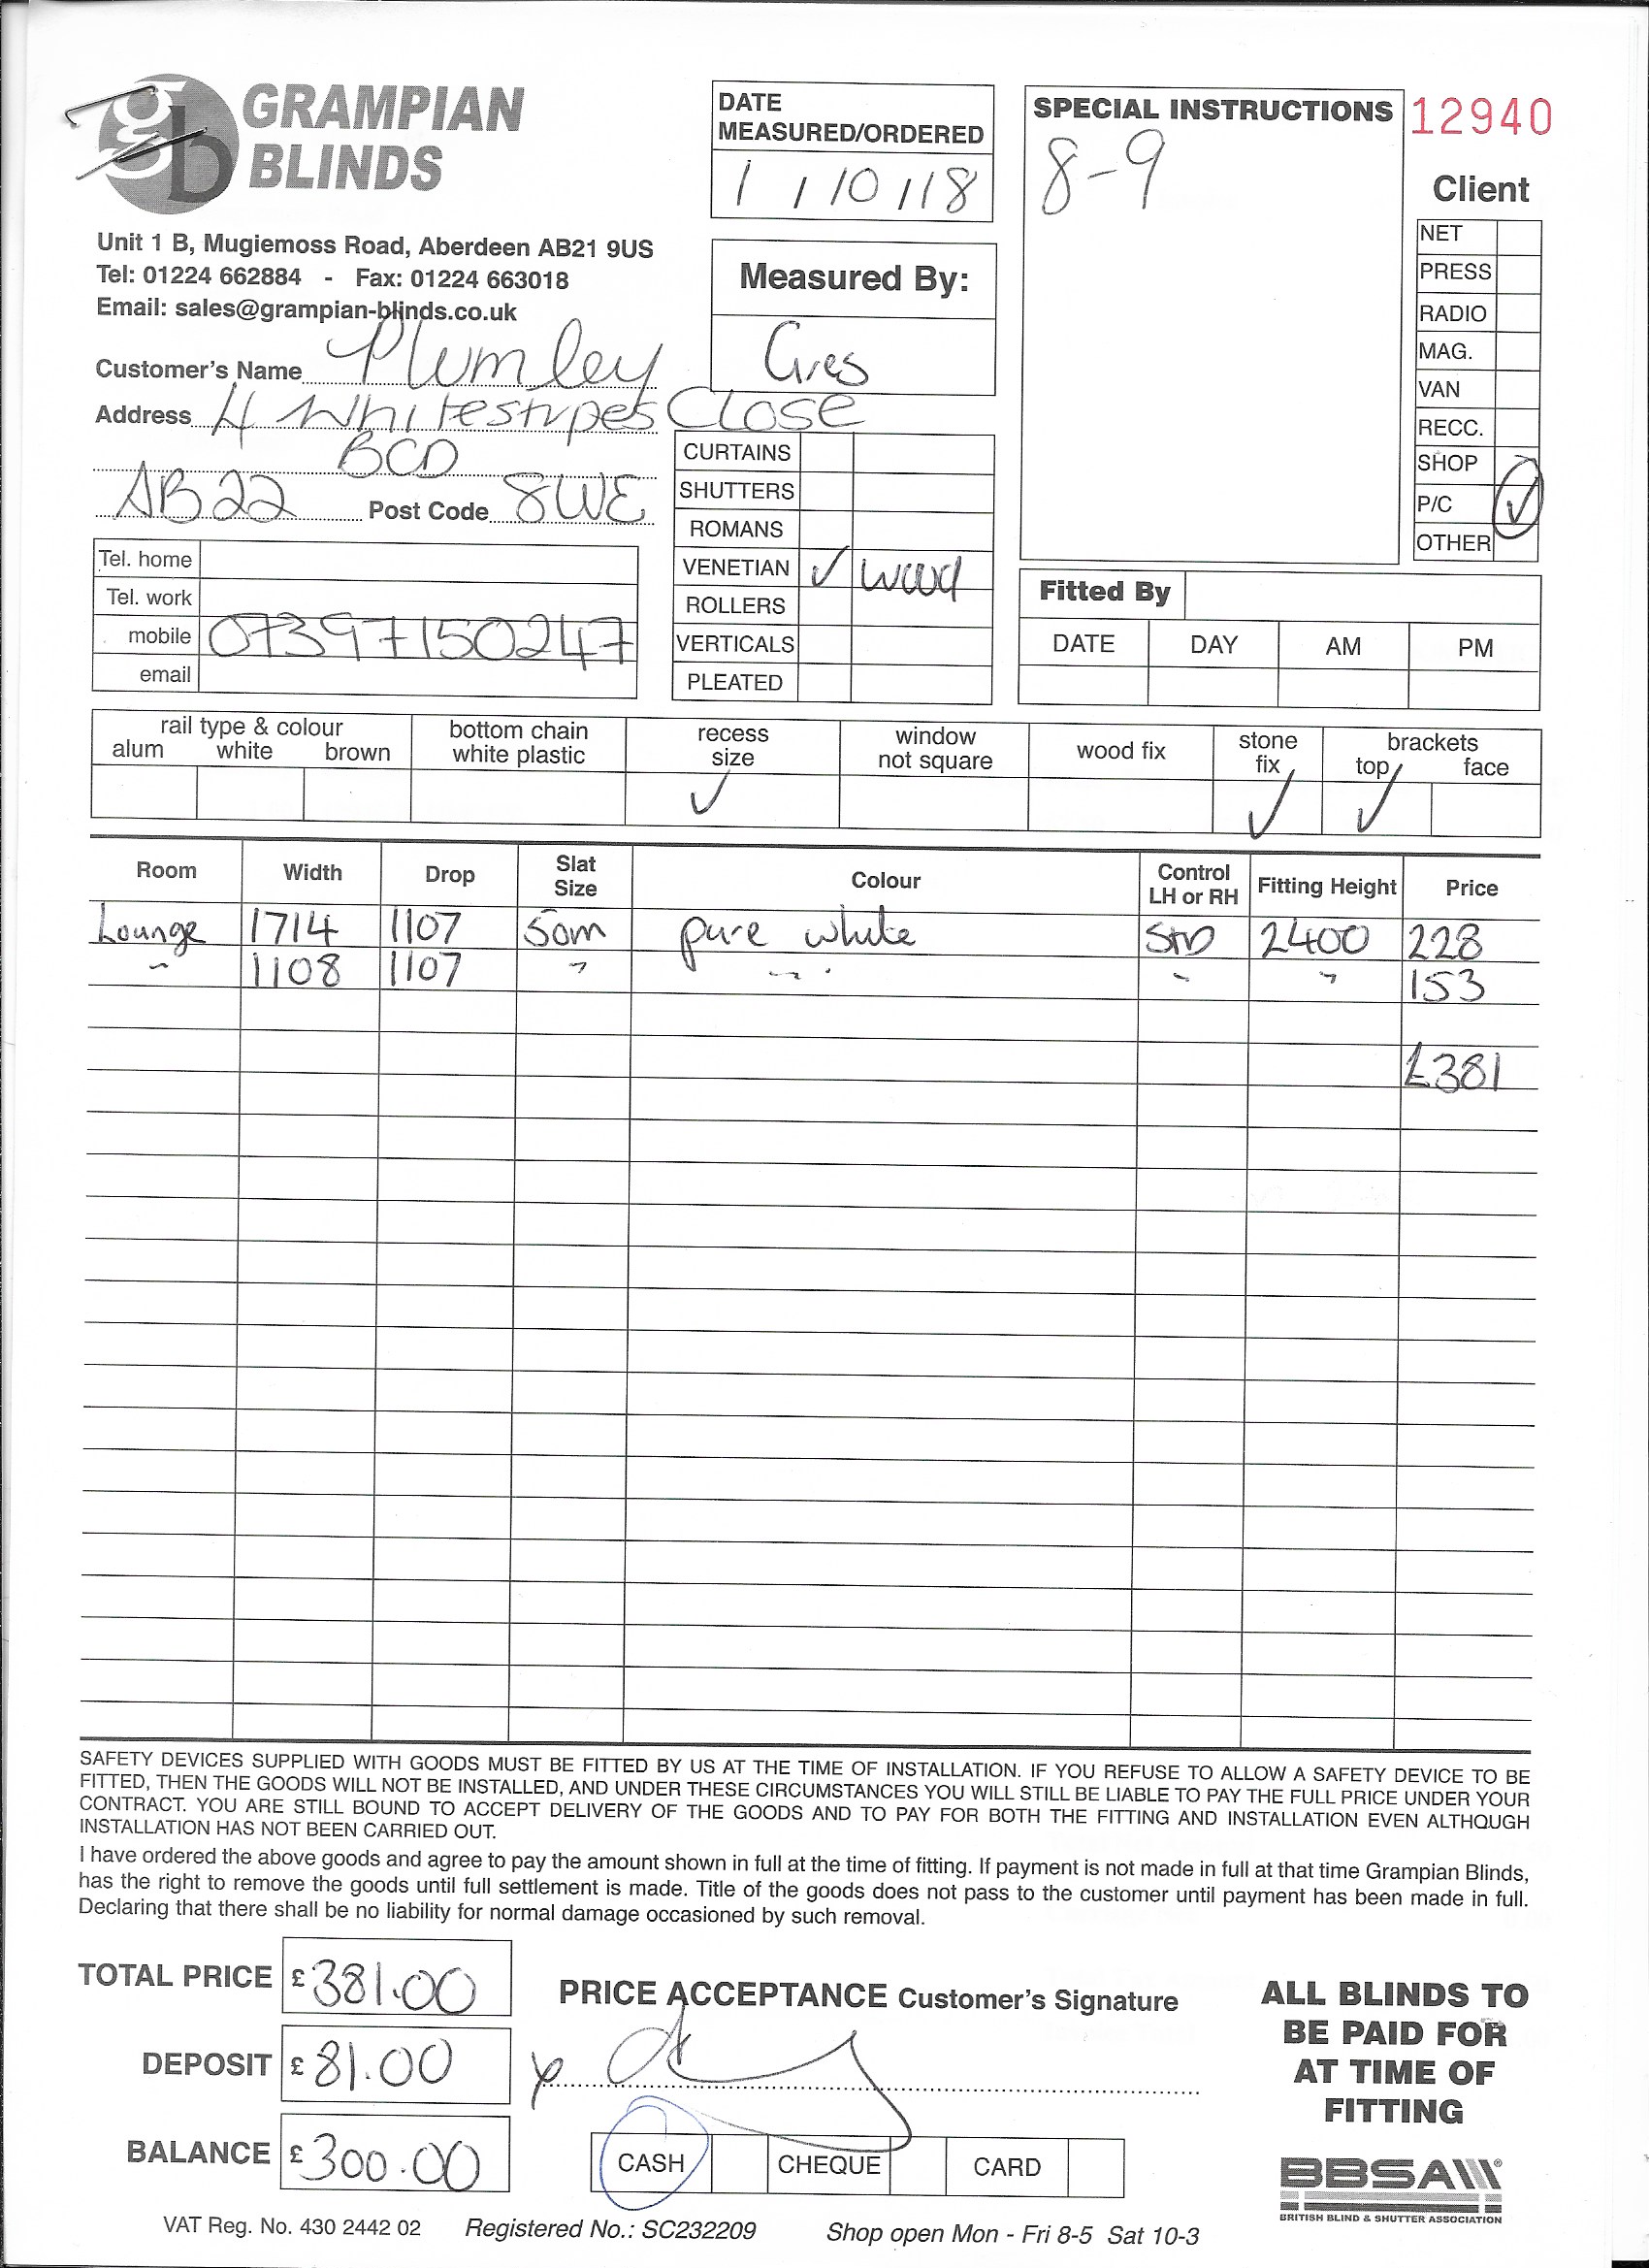 gb GRAMPIAN BLINDS
Unit 1 B, Mugiemoss Road, Aberdeen AB21 9US
Tel: 01224 662884 - Fax: 01224 663018
Email: sales@grampian-blinds.co.uk
Customer's Name Plumley
Address 4 Whitestripes Close
BCD
AB22 Post Code 8WE
Tel. home
Tel. work
mobile 07397150247
email
DATE MEASURED/ORDERED
1/10/18
Measured By:
CURTAINS
SHUTTERS
ROMANS
VENETIAN ✓ wood
ROLLERS
VERTICALS
PLEATED
SPECIAL INSTRUCTIONS
8-9
12940
Client
NET
PRESS
RADIO
MAG.
VAN
RECC.
SHOP
P/C ✓
OTHER
Fitted By
DATE DAY AM PM
rail type & colour
alum white brown
bottom chain white plastic
recess size ✓
window not square
wood fix
stone fix ✓
brackets
top ✓ face
Room Width Drop Slat Size Colour Control LH or RH Fitting Height Price
Lounge 1714 1107 50m pure white STD 2400 228
" 1108 1107 " " " " 153
£381
SAFETY DEVICES SUPPLIED WITH GOODS MUST BE FITTED BY US AT THE TIME OF INSTALLATION. IF YOU REFUSE TO ALLOW A SAFETY DEVICE TO BE
FITTED, THEN THE GOODS WILL NOT BE INSTALLED, AND UNDER THESE CIRCUMSTANCES YOU WILL STILL BE LIABLE TO PAY THE FULL PRICE UNDER YOUR
CONTRACT. YOU ARE STILL BOUND TO ACCEPT DELIVERY OF THE GOODS AND TO PAY FOR BOTH THE FITTING AND INSTALLATION EVEN ALTHOUGH
INSTALLATION HAS NOT BEEN CARRIED OUT.
I have ordered the above goods and agree to pay the amount shown in full at the time of fitting. If payment is not made in full at that time Grampian Blinds,
has the right to remove the goods until full settlement is made. Title of the goods does not pass to the customer until payment has been made in full.
Declaring that there shall be no liability for normal damage occasioned by such removal.
TOTAL PRICE £ 381.00
DEPOSIT £ 81.00
BALANCE £ 300.00
PRICE ACCEPTANCE Customer's Signature
x
CASH CHEQUE CARD
ALL BLINDS TO
BE PAID FOR
AT TIME OF
FITTING
BBSA
BRITISH BLIND & SHUTTER ASSOCIATION
VAT Reg. No. 430 2442 02 Registered No.: SC232209 Shop open Mon - Fri 8-5 Sat 10-3